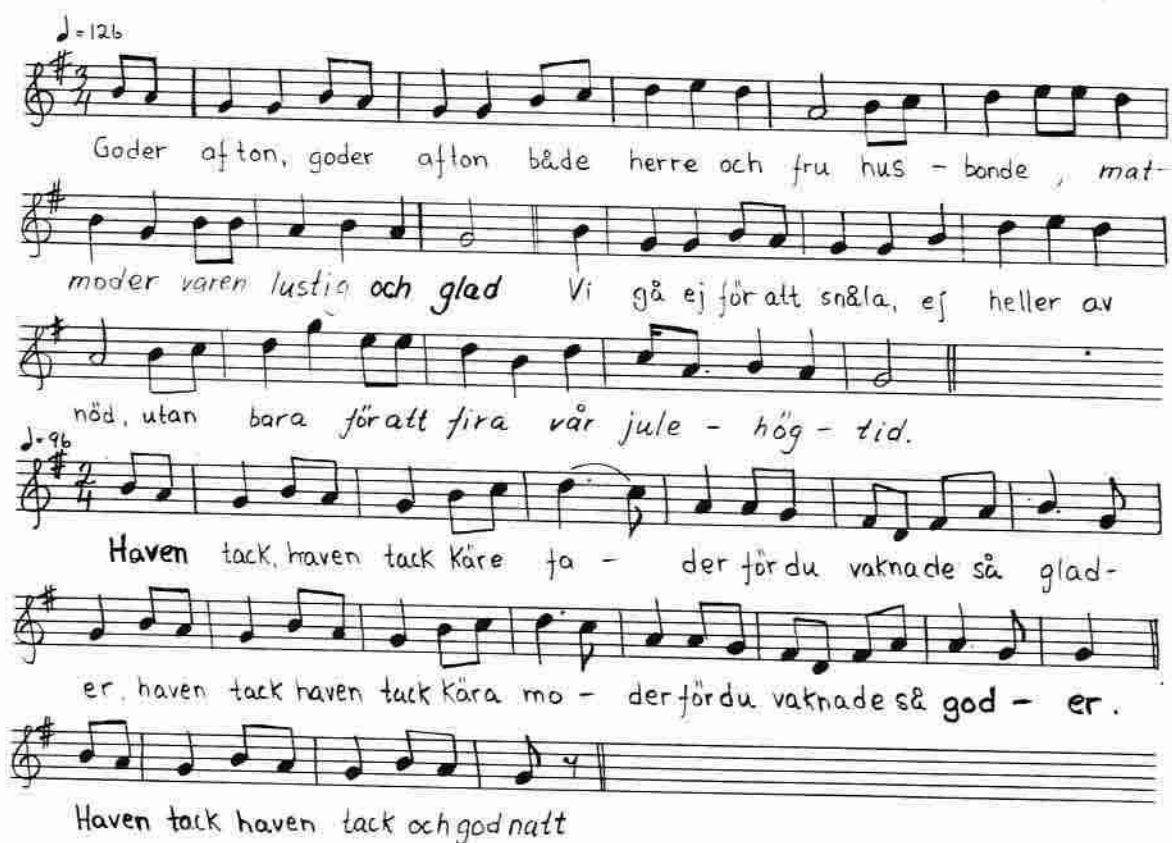 ♩=126
3/4
Goder afton, goder afton både herre och fru hus - bonde, mat-
moder varen lustig och glad Vi gå ej för att snåla, ej heller av
nöd, utan bara för att fira vår jule - hög - tid.
♩=96
2/4
Haven tack, haven tack Käre fa - der för du vaknade så glad-
er, haven tack haven tack Kära mo - der för du vaknade så god - er.
Haven tack haven tack och god natt